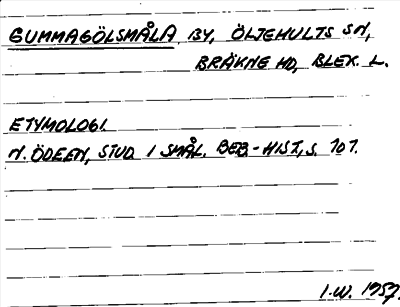 GUMMAGÖLSMÅLA BY, ÖLJEHULTS SN,
BRÄKNE HD, BLEK. L.
ETYMOLOGI.
N. ÖDEEN, STUD I SMÅL. BEB.-HIST, S. 101.
I.W. 1957.